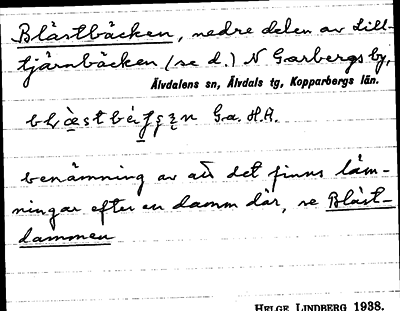 Blåstbäcken, nedre delen av Lill-
tjärnbäcken (se d.) N Garbergs by,
Älvdalens sn, Älvdals tg, Kopparbergs län.
Ga. H.A.
benämning av att det finns läm-
ningar efter en damm där, se Blåst-
dammen
HELGE LINDBERG 1938.